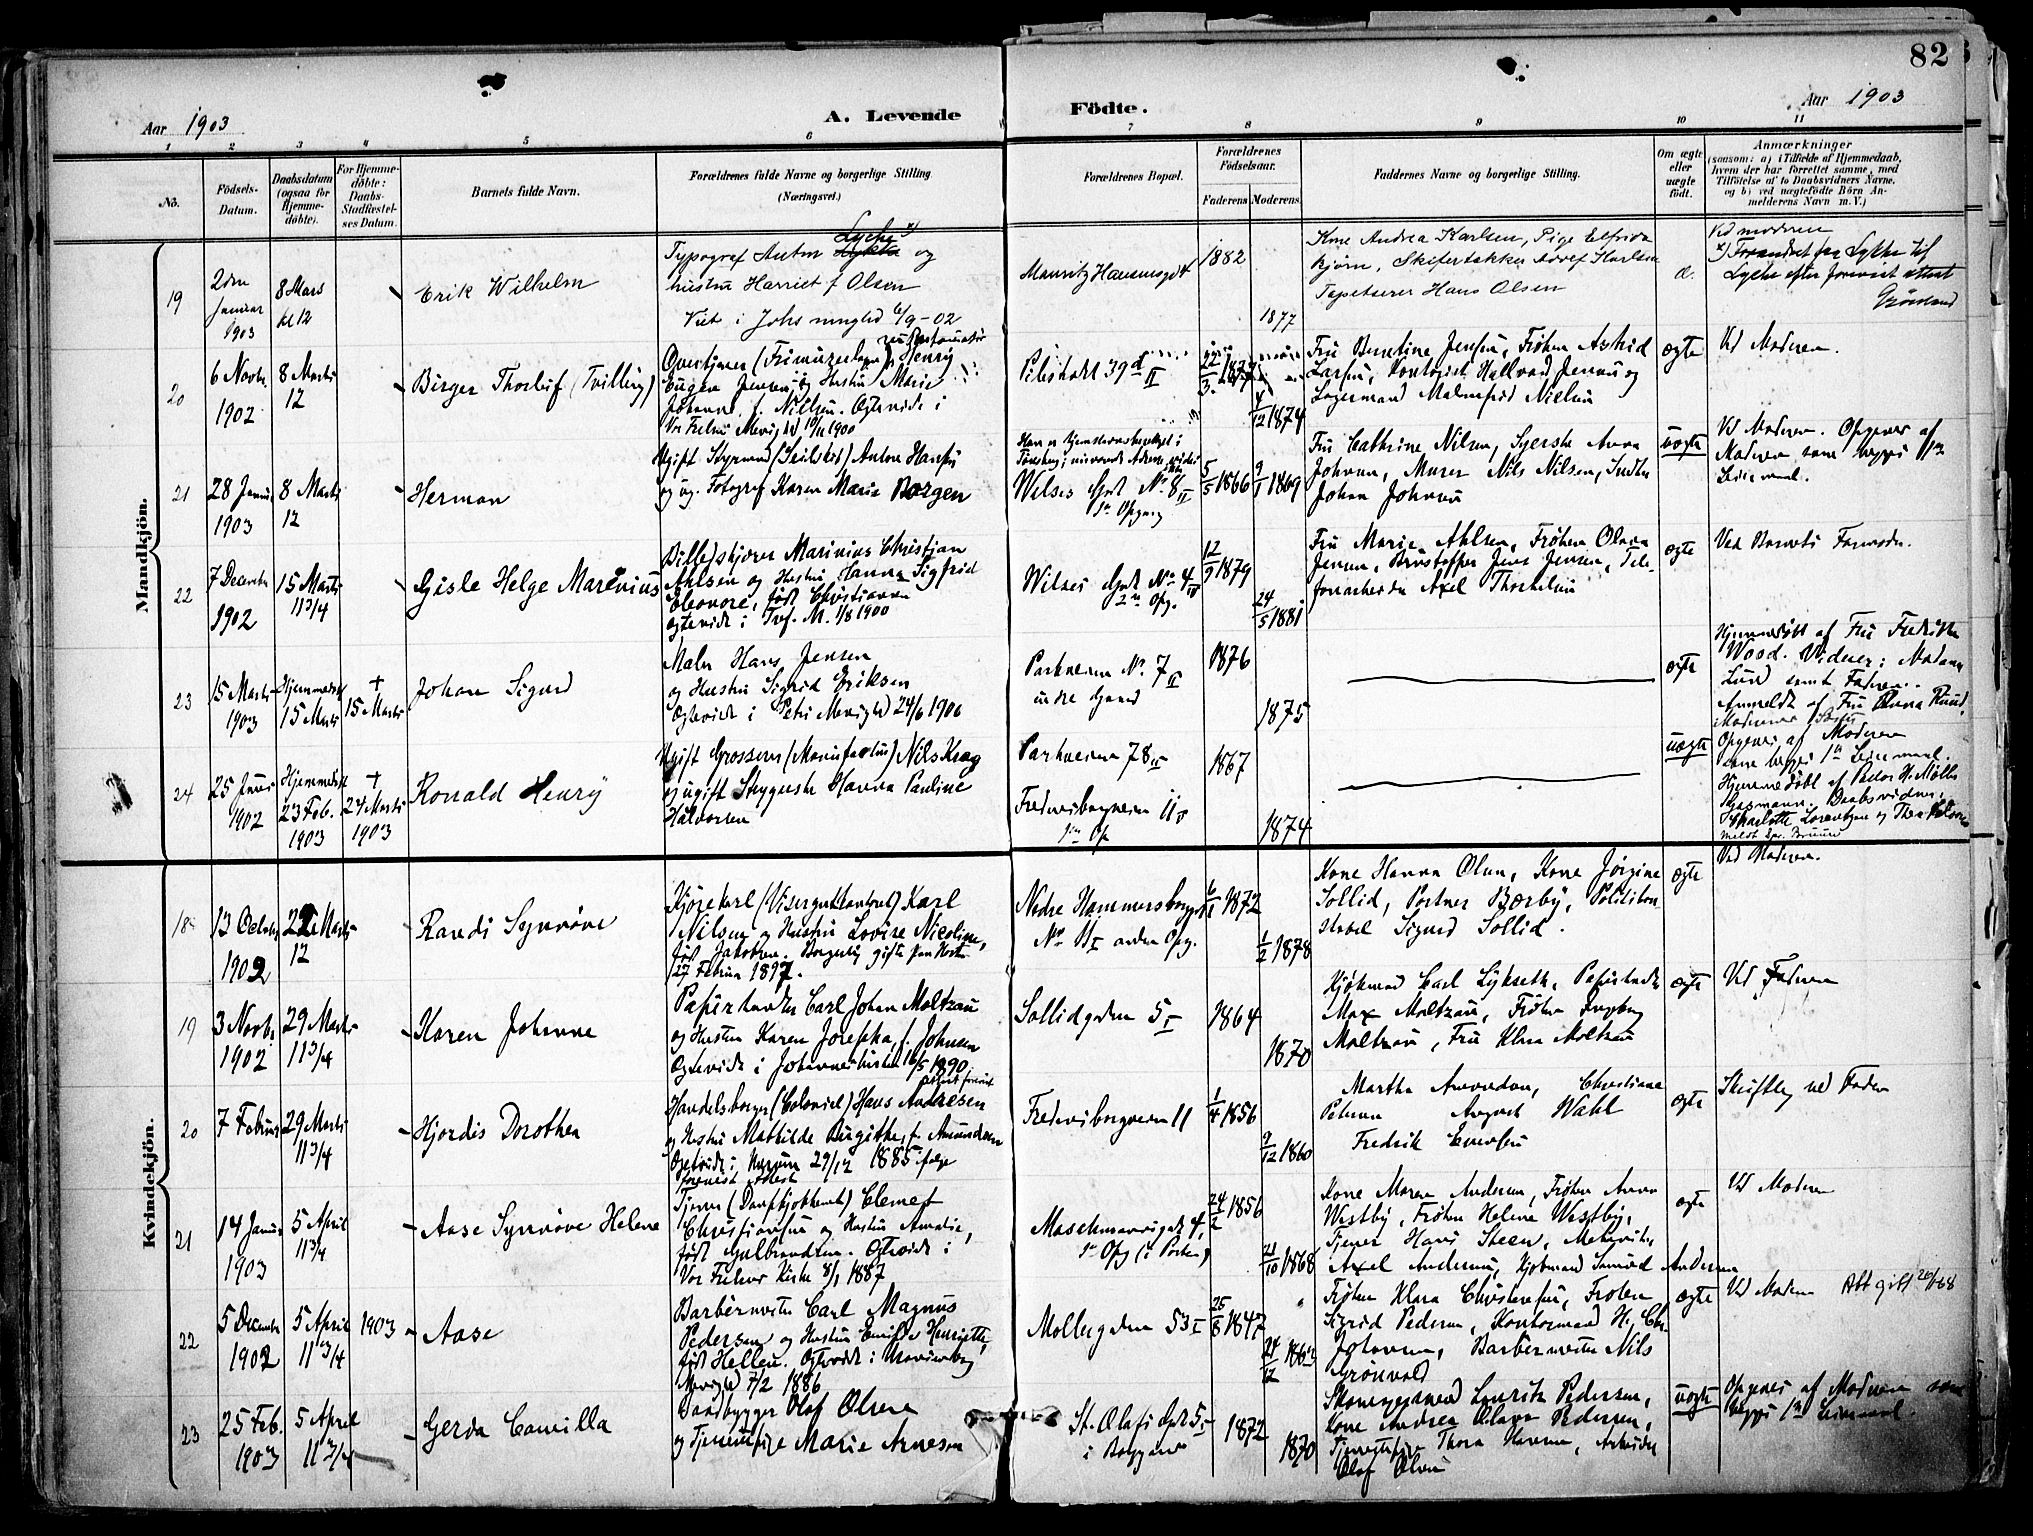 82
Aar 1903
A. Levende
Födte.
Aar 1903
1 2 3 4 5 6 7 8 9 10 11
No.
Födsels-
Datum.
Daabsdatum
(ogsaa for
Hjemme-
döbte).
For Hjemme-
döbte:
Daabs-
Stadfæstel-
ses Datum.
Barnets fulde Navn.
Forældrenes fulde Navne og borgerlige Stilling
(Næringsvei.)
Forældrenes Bopæl.
Forældrenes
Födselsaar.
Faderens Moderens
Faddernes Navne og borgerlige Stilling.
Om ægte
eller
uægte
født.
Anmærkninger
(saasom: a) i Tilfælde af Hjemmedaab,
hvem der har forrettet samme, med
Tilföielse af to Daabsvidners Navne,
og b) ved uægtefödte Börn An-
melderens Navn m. V.)
Mandkjön.
19
2den
Januar
1903
8 Mars
kl 12
Erik Wilhelm
Lyche x)
Typograf Anton Lykke og
hustru Harriet f Olsen
Viet i Johs mnghd 6/9-02
1882
1877
Kone Andrea Karlsen, Pige Elfrida
Bjørn, Skifertækker Adolf Karlsen
Tapetserer Hans Olsen
æ.
Ved moderen
x) Forandret fra Lykke til
Lyche efter forevist attest
20
6 Novbr
1902
8 Marts
12
Birger Thorleif (Tvilling)
Overtjener (Frimurerlogen) Henry
Eugen Jensen og Hustru Marie
Johanne f. Nielsen. Ægteviede i
Vor Frelsers Menighed 10/11 1900
Pilestræde 39d II
4/12 1874
Fru Berntine Jensen, Frøken Astrid
Larsen, Kontorist Hallvard Jensen og
Lagermand Malmfred Nielsen
ægte
Ved Moderen.
21
28 Januar
1903
8 Marts
12
Herman
Ugift Styrmand (Seilskib) Anton Hansen
og ug. Fotograf Karen Marie Borgen
Wilses Gade No 8 II
1ste Opgang
5/5 1866
9/1 1869
Fru Cathrine Nilsen, Syerske Anna
Johnsen, Murer Nils Nilsen, Snedker
Johan Johnsen
uægte
Ved Moderen. Opgiver af
Moderen som begges 1ste
Leiermaal.
22
7 December
1902
15 Marts
11 3/4
Gisle Helge Marenius
Billedskjærer Marinius Christian
Ahlsen og Hustru Hanna Sigfrid
Eleonore, født Christiansen
Ægteviede i Tref. M. 1/8 1900
Wilses Gade No 4 IV
2den Opg.
12/9 1879
24/5 1881
Fru Marie Ahlsen, Frøken Olava
Jensen, Børstestøpper Jens Jensen, Tele-
fonarbeider Axel Thorkelsen
ægte
Ved Barnets Farmoder.
23
15 Marts
1903
Hjemmedøbt
15 Marts
+
15 Marts
Johan Sigurd
Maler Hans Jensen
og Hustru Sigrid Eriksen
Ægteviede i Petri Menighed 24/6 1900
Parkveien No 7 II
indre Gaard
1876
1875
ægte
Hjemmedøbt af Fru Fredrikke
Wood. Vidner: Madam
Lund samt Faderen.
Anmeldt af Fru Anna Ruud,
Moderens Søster
24
25 Januar
1902
Hjemmedøbt
23 Feb.
1903
+
24 Marts
1903
Ronald Henry
Ugift Grosserer (Manufactur) Nils Krag
og ugift Strygerske Hanna Pauline
Halvorsen
Parkveien 78 II
Frederiksborgveien 11 V
1ste Op
1867
1874
uægte
Opgives af Moderen
være begges 1ste Leiermaal.
Hjemmedøbt af Pastor H. Møller
Gasmann. Daabsvidner:
Kvindekjön.
18
13 October
1902
22 Marts
12
Randi Synnøve
Kjørekarl (Visergutkontoret) Karl
Nilsen og Hustru Lovise Nicoline,
født Jakobsen. Borgerlig gifte
27 Februar 1897.
Nedre Hammersborggd
No 11 I anden Opg.
6/1 1872
1/2 1878
Kone Hanna Olsen, Kone Jørgine
Sollid, Portner Bærby, Politikon-
stabel Sigurd Sollid.
ægte
Ved Moderen.
19
3 Novbr.
1902
29 Marts
11 3/4
Karen Johanne
Papirhandler Carl Johan Moltzau
og Hustru Karen Josefka, f. Johnsen
Ægteviede i Johanneskirken 16/5 1890
Sollidgaden 5 I
1864
1870
Kjøbmand Carl Lykseth, Papirhandler
Max Moltzau, Frøken Ingeborg
Moltzau, Fru Klara Moltzau
ægte
Ved Faderen
20
7 Februar
29 Marts
11 3/4
Hjordis Dorothea
Handelsborger (Colonial) Hans Andresen
og Hustru Mathilde Birgitte, f. Amundsen
Ægteviede i Horsens 29/12 1885 ifølge
forevist Attest
Frederiksborgveien 11
1/4 1856
9/12 1860
Martha Amundsen, Christiane
Petersen August Wahl
Fredrik Evensen
ægte
Skriftlig ved Fader
21
14 Januar
1903
5 April
11 3/4
Aase Synnøve Helene
Tjener (Dampkjøkkenet) Clemet
Christiansen og Hustru Amalie,
født Gulbrandsen. Ægteviede i
Vor Frelsers Kirke 8/1 1887
1ste Opg (i Porten)
24/2 1856
21/10 1868
Kone Maren Andersen, Frøken Anna
Westby, Frøken Helene Westby,
Tjener Hans Steen,
Axel Andersen, Kjøbmand Andersen
ægte
Ved Moderen
22
5 December
1902
5 April
11 3/4
1903
Aase
Barbermester Carl Magnus
Pedersen og Hustru Emilie Henriette,
født Hellen. Ægteviede i
Menighed 7/2 1886
Møllergaden 53 I
25/8 1847
24/12 1865
Frøken Klara Christensen, Frøken
Sigrid Pedersen, Kontormand H. Chr.
Johansen, Barbermester Nils
Grönvold
ægte
Ved Moderen Att gift 26/1-68
23
25 Feb.
1903
5 April
11 3/4
Gerda Camilla
Baadbygger Olaf Olsen
og Tjenestepige Marie Arnesen
St. Olafs Gade 5
i Baggaarden
1872
1870
Skomagersvend Lauritz Pedersen,
Kone Andrea Olava Pedersen,
Tjenestepige Thora Hansen, Arbeider
Olaf Olsen
uægte
Opgives af Moderen som
begges 1ste Leiermaal.